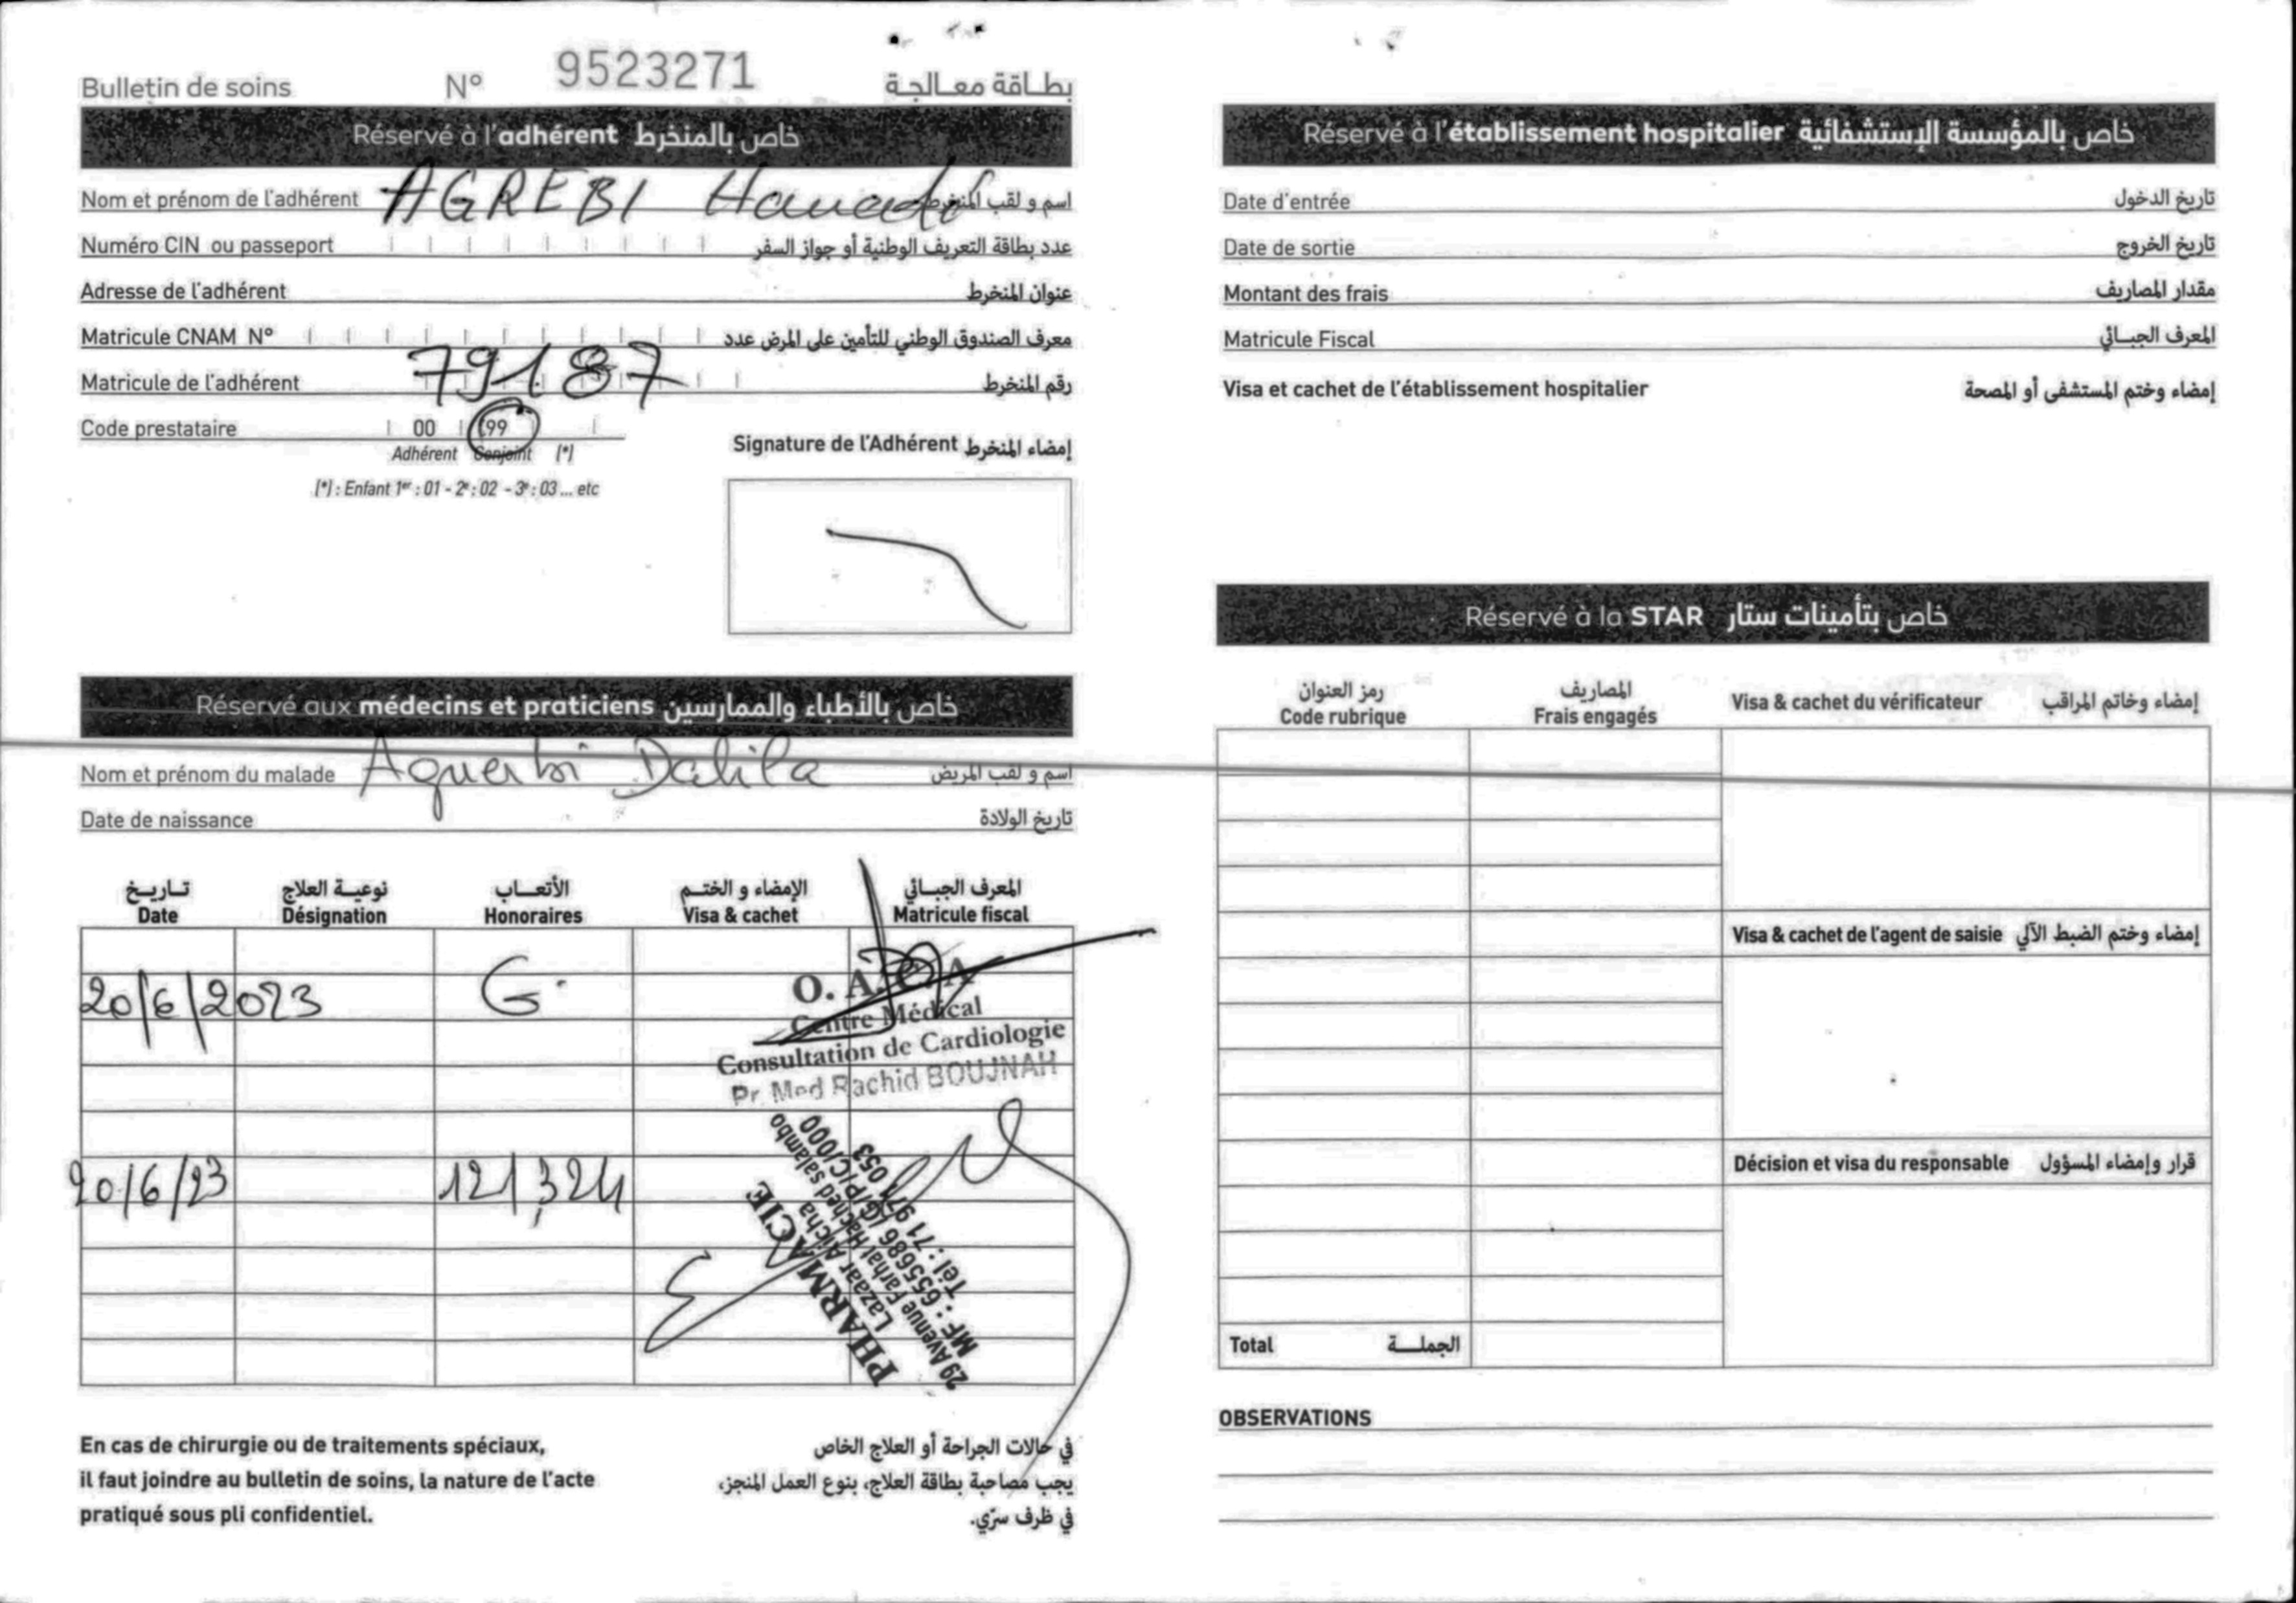 Bulletin de soins N° 9523271 بطاقة معالجة
Réservé à l'adhérent خاص بالمنخرط
Nom et prénom de l'adhérent AGREBI Hanadi اسم و لقب المنخرط
Numéro CIN ou passeport عدد بطاقة التعريف الوطنية أو جواز السفر
Adresse de l'adhérent عنوان المنخرط
Matricule CNAM N° معرف الصندوق الوطني للتأمين على المرض عدد
Matricule de l'adhérent 79187 رقم المنخرط
Code prestataire 00 99
Adhérent Conjoint (*)
(*) : Enfant 1er : 01 - 2e : 02 - 3e : 03 ... etc
Signature de l'Adhérent إمضاء المنخرط
Réservé aux médecins et praticiens خاص بالأطباء والممارسين
Nom et prénom du malade Aguerbi Dalila اسم و لقب المريض
Date de naissance تاريخ الولادة
تاريخ نوعية العلاج الأتعاب الإمضاء و الختم المعرف الجبائي
Date Désignation Honoraires Visa & cachet Matricule fiscal
20/6/2023 G.
O. A. C. A
Centre Médical
Consultation de Cardiologie
Pr. Med Rachid BOUJNAH
20/6/23 121,324
PHARMACIE
Lazaar Aicha
29 Avenue Farhat Hached salambo
MF : 655686 /G/P/C/000
Tél : 71 971 053
En cas de chirurgie ou de traitements spéciaux,
il faut joindre au bulletin de soins, la nature de l'acte
pratiqué sous pli confidentiel.
في حالات الجراحة أو العلاج الخاص
يجب مصاحبة بطاقة العلاج، بنوع العمل المنجز،
في ظرف سرّي.
Réservé à l'établissement hospitalier خاص بالمؤسسة الإستشفائية
Date d'entrée تاريخ الدخول
Date de sortie تاريخ الخروج
Montant des frais مقدار المصاريف
Matricule Fiscal المعرف الجبائي
Visa et cachet de l'établissement hospitalier إمضاء وختم المستشفى أو المصحة
Réservé à la STAR خاص بتأمينات ستار
رمز العنوان المصاريف
Code rubrique Frais engagés Visa & cachet du vérificateur إمضاء وخاتم المراقب
Visa & cachet de l'agent de saisie إمضاء وختم الضبط الآلي
Décision et visa du responsable قرار وإمضاء المسؤول
Total الجملة
OBSERVATIONS